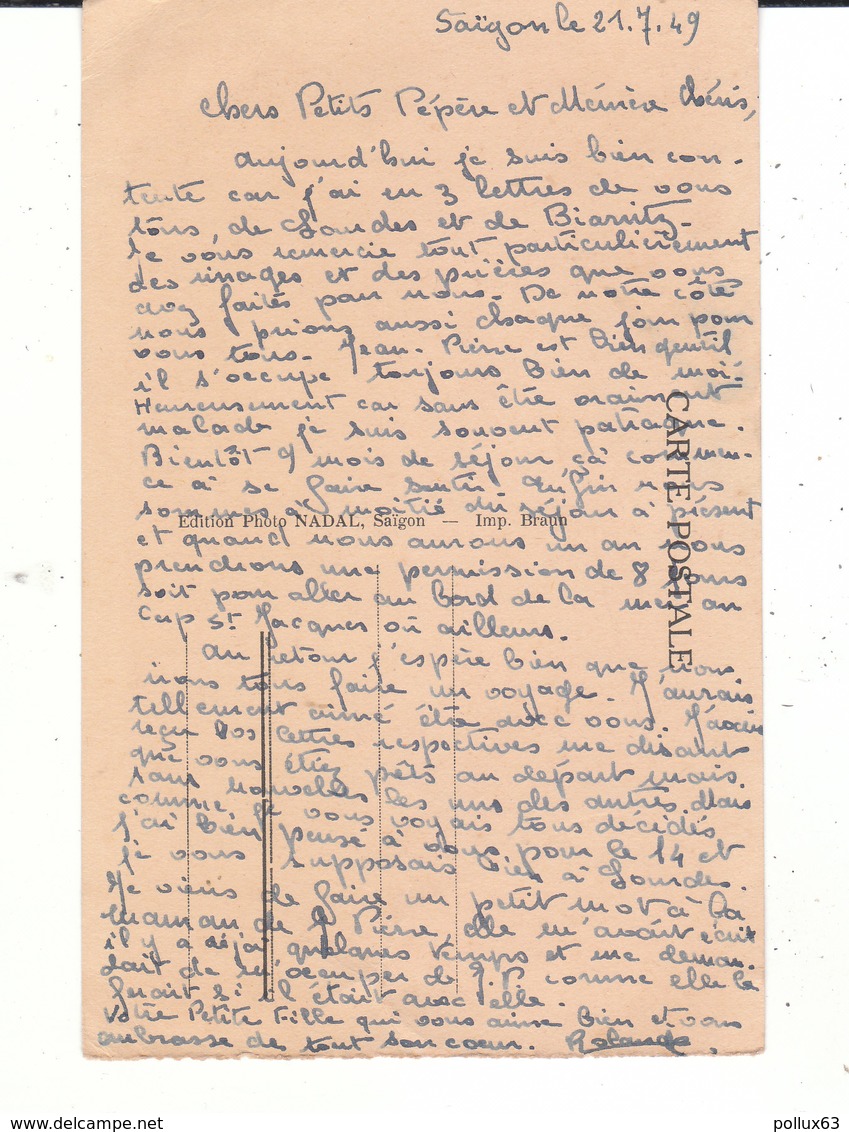 Saïgon le 21.7.49
Chers Petits Pépère et Mémère Chéris,
Aujourd'hui je suis bien con-
tente car j'ai eu 3 lettres de vous
tous, de Lourdes et de Biarritz.
Je vous remercie tout particulièrement
des images et des prières que vous
avez faites pour nous. De notre côté
nous prions aussi chaque jour pour
vous tous. Jean-Pierre est bien gentil
il s'occupe toujours bien de moi.
Heureusement car sans être vraiment
malade je suis souvent patraque.
Bientôt 9 mois de séjour ça commen-
ce à se faire sentir. Enfin nous
sommes à moitié du séjour à présent
Edition Photo NADAL, Saïgon — Imp. Braun
et quand nous aurons un an nous
prendrons une permission de 8 jours
soit pour aller au bord de la mer au
Cap St Jacques où ailleurs.
Au retour j'espère bien que nous
irons tous faire un voyage. J'aurais
tellement aimé être avec vous. J'avais
reçu vos lettres respectives me disant
que vous étiez prêts au départ mais
sans nouvelles les uns des autres. Mais
comme je vous voyais tous décidés
j'ai bien pensé à vous pour le 14 et
je vous supposais bien à Lourdes.
Je viens de faire un petit mot à la
maman de J. Pierre, elle m'avait écrit
il y a déjà quelques temps et me deman-
dait de m'occuper de J.P comme elle le
ferait si il était avec elle.
Votre Petite Fille qui vous aime bien et vous
embrasse de tout son coeur. Rolande.
CARTE POSTALE
pollux63